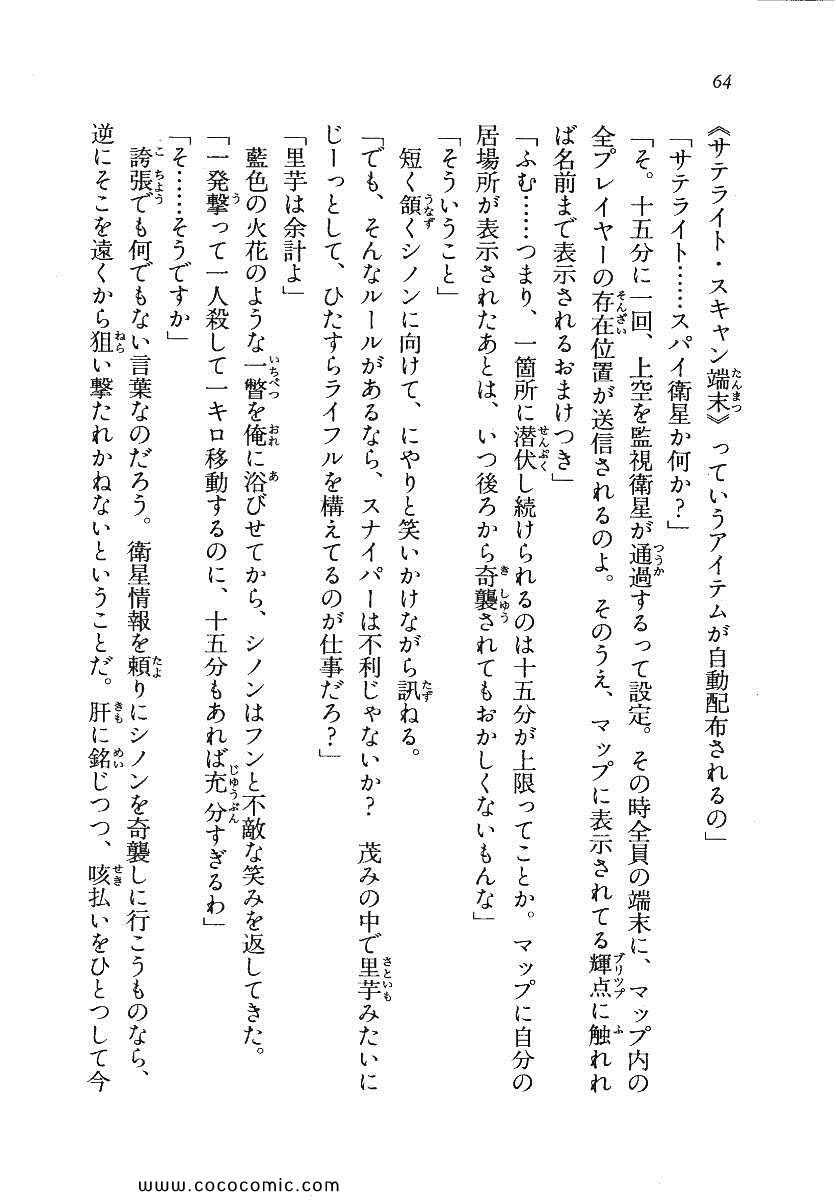 64
《サテライト・スキャン端末》っていうアイテムが自動配布されるの」
「サテライト……スパイ衛星か何か?」
「そ。十五分に一回、上空を監視衛星が通過するって設定。その時全員の端末に、マップ内の
全プレイヤーの存在位置が送信されるのよ。そのうえ、マップに表示されてる輝点に触れれ
ば名前まで表示されるおまけつき」
「ふむ……つまり、一箇所に潜伏し続けられるのは十五分が上限ってことか。マップに自分の
居場所が表示されたあとは、いつ後ろから奇襲されてもおかしくないもんな」
「そういうこと」
短く頷くシノンに向けて、にやりと笑いかけながら訊ねる。
「でも、そんなルールがあるなら、スナイパーは不利じゃないか? 茂みの中で里芋みたいに
じーっとして、ひたすらライフルを構えてるのが仕事だろ?」
「里芋は余計よ」
藍色の火花のような一瞥を俺に浴びせてから、シノンはフンと不敵な笑みを返してきた。
「一発撃って一人殺して一キロ移動するのに、十五分もあれば充分すぎるわ」
「そ……そうですか」
誇張でも何でもない言葉なのだろう。衛星情報を頼りにシノンを奇襲しに行こうものなら、
逆にそこを遠くから狙い撃たれかねないということだ。肝に銘じつつ、咳払いをひとつして今
www.cococomic.com